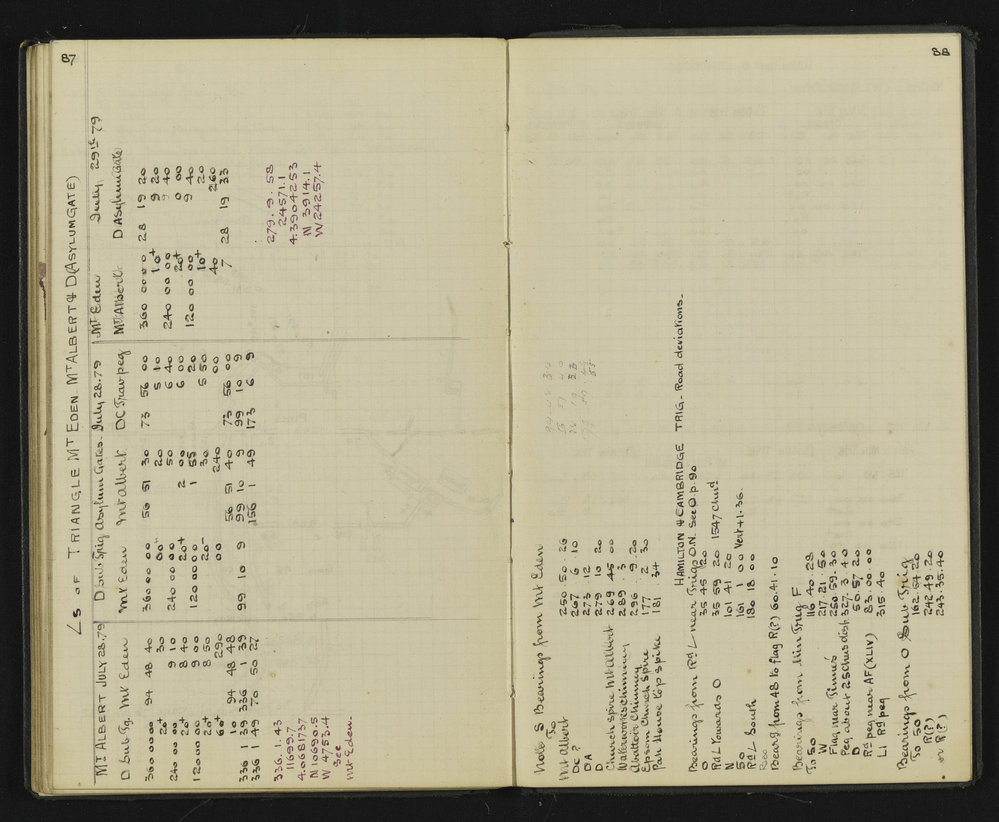 87
∠s OF TRIANGLE MT EDEN. MT ALBERT & D (ASYLUM GATE)
MT ALBERT JULY 28.79
D Sub Tg. Mt Eden
360 00 00 94 48 40
20+ 30
240 00 00 9 10
20+ 8 40
120 00 00 9 00
20+ 8 50
6+ 290
10 94 48 48
336 1 39 336 1 39
336 1 49 70 50 27
336.1.43
11699.7
4.0681737
N 10690.5
W 4753.4
See
Mt Eden.
D Sub Trig Asylum Gates. July 28.79
Mt Eden Mt Albert DC Trav peg
360 00 00 56 51 30 73 56 00
00" 20 5 10
240 00 00 50 6 40
20+ 2 00 6 00
120 00 00 1 55 5 20
20- 30 5 50
00 240 00
56 51 40 73 56 00
99 10 9 99 10 9 99 10 9
156 1 49 173 6 9
Mt Eden July 29th 79
Mt Albert D Asylum Gate
360 00 00 28 19 20
10+ 9 20
240 00 00 9 40
20+ 0 00
120 00 00 9 40
10+ 20
40 260
7 28 19 33
279.9.58
24571.1
4.3904253
N 3914.1
W 24257.4
88
Note S Bearings from Mt Eden
To
Mt Albert 250 50 26
DC ? 267 6 10
DA 273 12
D 279 10 20
Church spire Mt Albert 269 45 00
Waterworks Chimney 289 3
Abattoir Chimney 296 9 20
Epsom Church Spire 177 2 30
Pah House top spike 181 34
HAMILTON & CAMBRIDGE TRIG. Road deviations.
Bearings from Rd L near Trigs O.N. See O.p.90
O 35 45 20
Rd L towards O 35 59 20 1547 Chsd
N 101 41 20
50 161 1 00 Vert + 1.36.
Rd L South 180 18 00
Bearg from 48 to flag R(?) 60.41.10
Bearings from Min Trig F
To 50 116 40 28
W 217 21 50
Flag near Pinnés 250.59.30
Peg about 25 chns dist 327.3 40
D 50.57 20
Rd peg near AF (XLIV) 83.00.00
L1 Rd peg 315 40
Bearings from O Sub Trig
To 50 162.54 20
R(?) 242 49 20
or R(?) 243.35.40